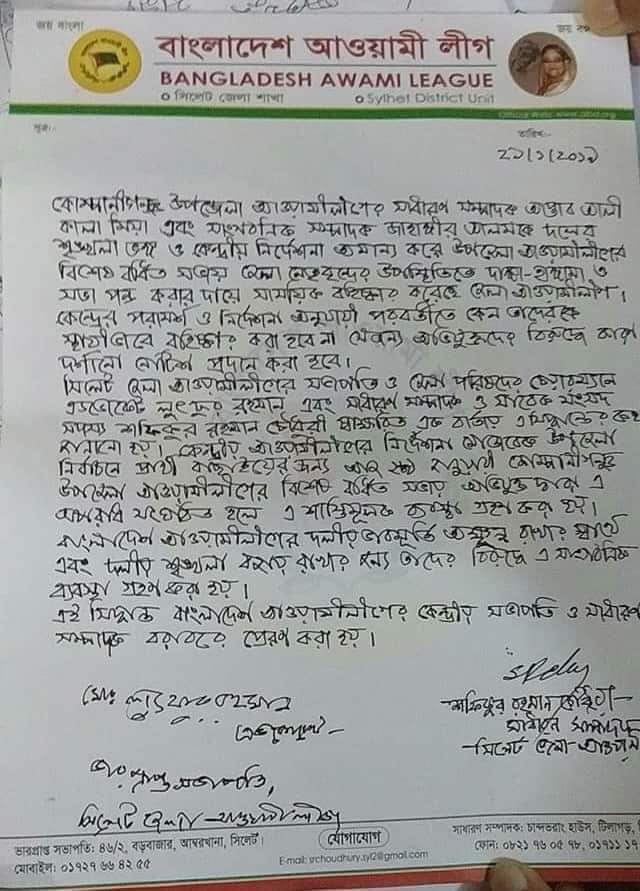 জয় বাংলা
জয় বঙ্গ
বাংলাদেশ আওয়ামী লীগ
BANGLADESH AWAMI LEAGUE
সিলেট জেলা শাখা
Sylhet District Unit
সূত্র:-
তারিখ:-
২৯/১/২০১৯
কোম্পানীগঞ্জ উপজেলা আওয়ামীলীগের সাধারণ সম্পাদক আপ্তাব আলী
কালা মিয়া এবং সাংগঠনিক সম্পাদক জাহাঙ্গীর আলমকে দলের
শৃঙ্খলা ভঙ্গ ও কেন্দ্রীয় নির্দেশনা অমান্য করে উপজেলা আওয়ামীলীগের
বিশেষ বর্ধিত সভায় জেলা নেতৃবৃন্দের উপস্থিতিতে দাঙ্গা-হাঙ্গামা ও
সভা পন্ড করার দায়ে সাময়িক বহিষ্কার করেছে জেলা আওয়ামীলীগ।
কেন্দ্রের পরামর্শ ও নির্দেশনা অনুযায়ী পরবর্তীতে কেন তাদেরকে
স্থায়ীভাবে বহিষ্কার করা হবে না সেজন্য অভিযুক্তদের বিরুদ্ধে কারণ
দর্শানো নোটিশ প্রদান করা হবে।
সিলেট জেলা আওয়ামীলীগের সভাপতি ও জেলা পরিষদের চেয়ারম্যান
এডভোকেট লুৎফুর রহমান এবং সাধারণ সম্পাদক ও সাবেক সংসদ
সদস্য শফিকুর রহমান চৌধুরী স্বাক্ষরিত এক বার্তায় এ সিদ্ধান্তের কথা
জানানো হয়। কেন্দ্রীয় আওয়ামীলীগের নির্দেশনা মোতাবেক উপজেলা
নির্বাচনে প্রার্থী বাছাইয়ের জন্য আজ ২৯ জানুয়ারী কোম্পানীগঞ্জ
উপজেলা আওয়ামীলীগের বিশেষ বর্ধিত সভায় অভিযুক্ত দ্বারা এ
অপরাধ সংঘটিত হলে এ শাস্তিমূলক ব্যবস্থা গ্রহণ করা হয়।
বাংলাদেশ আওয়ামীলীগের দলীয় ভাবমূর্তি অক্ষুন্ন রাখার স্বার্থে
এবং দলীয় শৃঙ্খলা বজায় রাখার জন্য তাদের বিরুদ্ধে এ সাংগঠনিক
ব্যবস্থা গ্রহণ করা হয়।
এই সিদ্ধান্ত বাংলাদেশ আওয়ামীলীগের কেন্দ্রীয় সভাপতি ও সাধারণ
সম্পাদক বরাবরে প্রেরণ করা হয়।
মোঃ লুৎফুর রহমান
এডভোকেট
ভারপ্রাপ্ত সভাপতি,
সিলেট জেলা আওয়ামীলীগ
শফিকুর রহমান চৌধুরী
সাধারণ সম্পাদক
সিলেট জেলা আওয়ামী
ভারপ্রাপ্ত সভাপতি: ৪৬/২, বড়বাজার, আম্বরখানা, সিলেট।
মোবাইল: ০১৭২৭ ৬৬ ৪২ ৫৫
যোগাযোগ
E-mail: srchoudhury.syl2@gmail.com
সাধারণ সম্পাদক: চান্দভরাং হাউস, টিলাগড়,
ফোন: ০৮২১ ৭৬ ০৫ ৭৮, ০১৭১১ ১৭